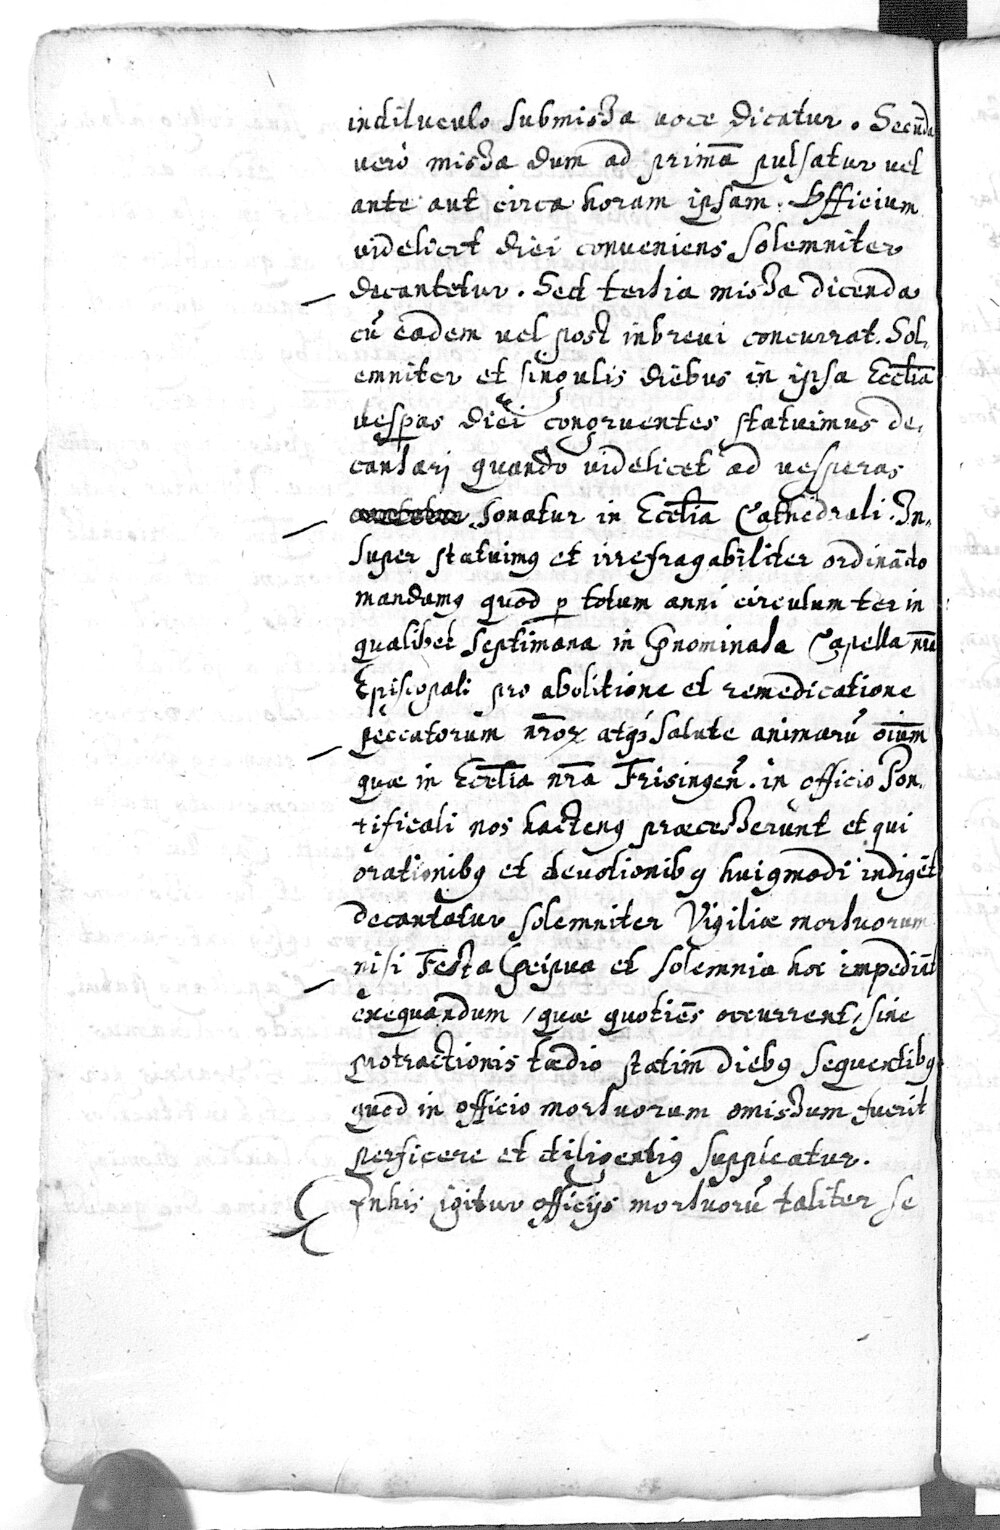 indiluculo submissa voce dicatur. Secūda
verò missa dum ad primā pulsatur vel
ante aut circa horam ipsam. Officium
videlicet diei conveniens solemniter
decantetur. Sed tertia missa dicenda
cū eadem vel post inbrevi concurrat. Sol,
emniter et singulis diebus in ipsa Eccl̄ia
vesꝑas diei congruentes statuimus de,
cantarj quando videlicet ad vesperas
sonatur in Eccl̄ia Cathedrali. In,
super statuimꝰ et irrefragabiliter ordināđo
mandamꝰ quod ꝑ totum anni circulum ter in
qualibet septimana in p̄nominada Capella nr̄a
Episcopali pro abolitione et remedicatione
peccatorum nr̄oꝝ atqꝫ salute animarū oīum
quæ in Eccl̄ia nr̄a Frisingen̄. in officio Pon,
tificali nos hactenꝰ præcesserunt et qui
orationibꝰ et devotionibꝰ huiꝰmodi indigēt
decantatur solemniter Vigiliæ mortuorum
nisi Festa p̄cipua et solemnia hoc impediūt
exequandum / quæ quotiēs occurrent / sine
protractionis tædio statim diebꝰ sequentibꝰ
quod in officio mortuorum omissum fuerit
perficere et diligentiꝰ suppleatur.
Inhis igitur officijs mortuorū taliter se